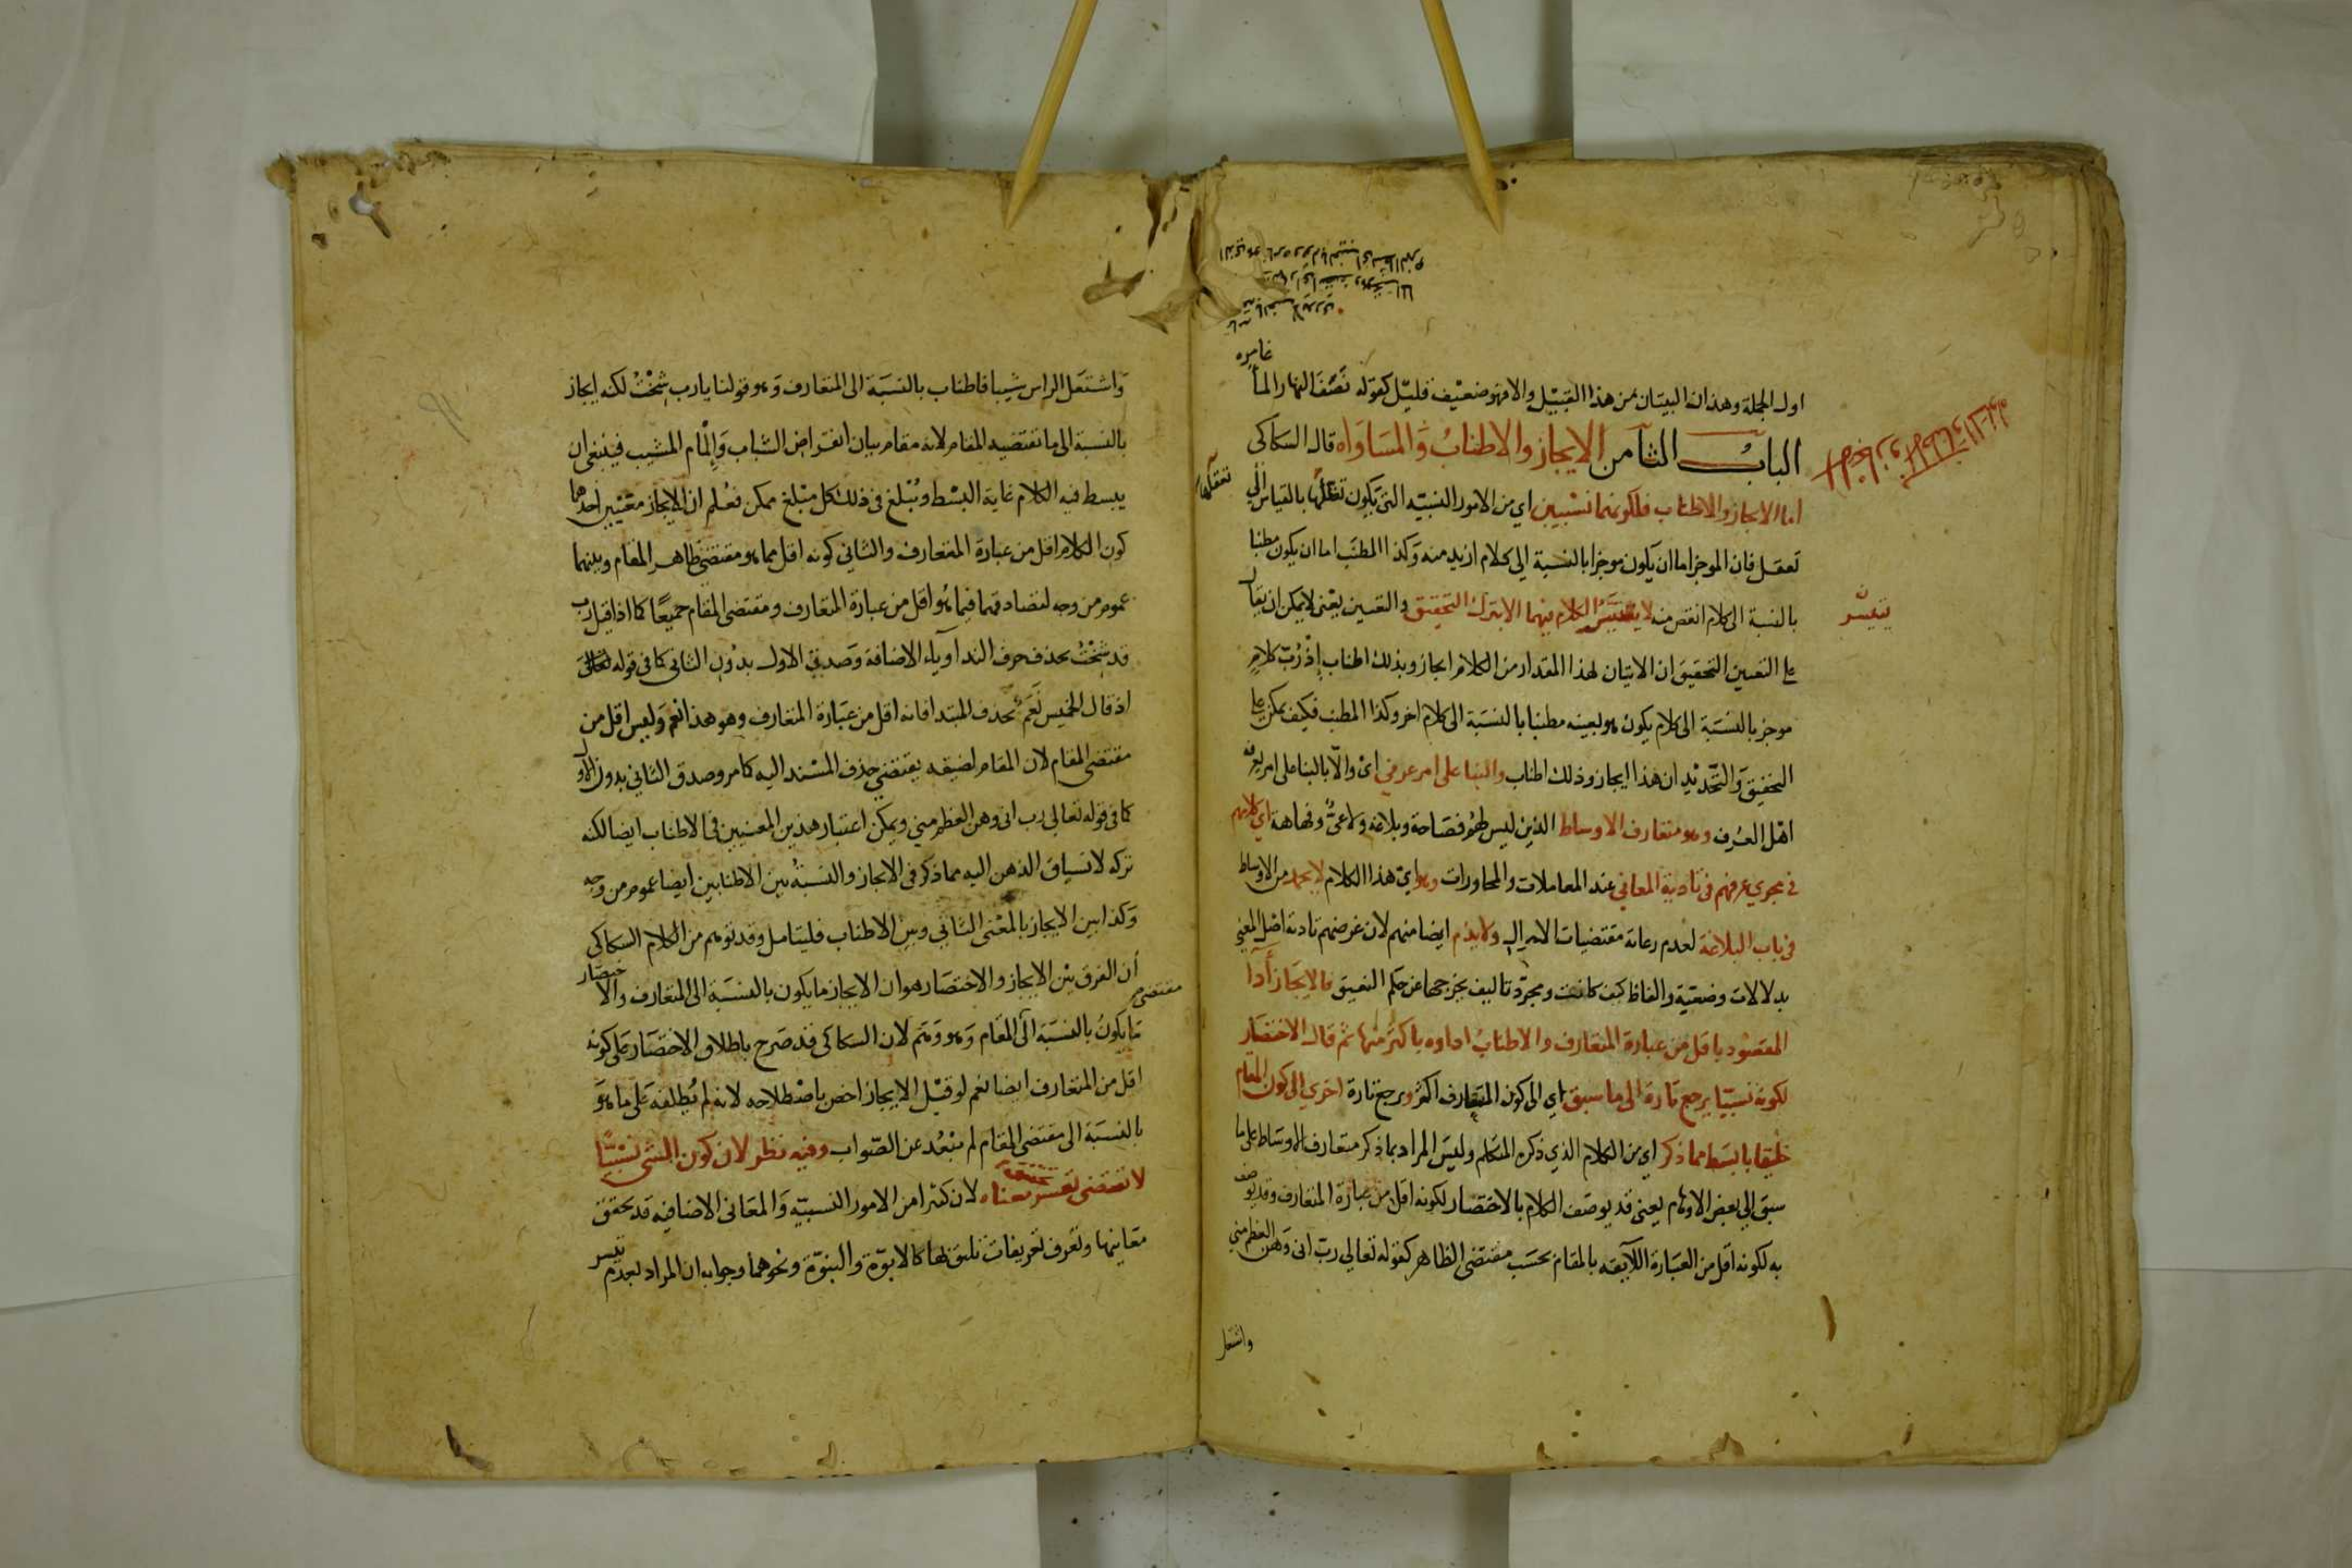 غامره
اول الجملة وهذان البيتان من هذا القبيل والا فهو ضعيف قليل كقوله نصف النهار الماء
الباب الثامن الايجاز والاطناب والمساواه قال السكاكى
اما الايجاز والاطناب فلكونهما نسبيين اي من الامور النسبية التي يكون تعقلها بالقياس الي
تعقلها
تعقل فان الموجز اما ان يكون موجزا بالنسبة الى كلام ازيد منه وكذا المطنب اما ان يكون مطنبا
بالنسبة الى كلام انقص منه لا يتيسر الكلام فيهما الا بترك التحقيق والتعيين يعني لا يمكن ان يقال
يتيسر
على التعيين التحقيق ان الاتيان لهذا المقدار من الكلام ايجاز وبذلك اطناب اذ رب كلام
موجز بالنسبة الى كلام يكون هو بعينه مطنبا بالنسبة الى كلام اخر وكذا المطنب فكيف يمكن على
التحقيق والتحديد ان هذا ايجاز وذلك اطناب والبنا على امر عرفي اى والا بالبنا على امر يعرفه
اهل العرف وهو متعارف الاوساط الذين ليس لهم فصاحة وبلاغة ولا عى وفهاهة اى كلامهم
في مجرى عرفهم في تادية المعاني عند المعاملات والمحاورات وهو اى هذا الكلام لا يحمد من الاوساط
في باب البلاغة لعدم رعاية مقتضيات الاحوال ولا يذم ايضا منهم لان غرضهم تادية اصل المعني
بدلالات وضعية والفاظ كيف كانت ومجرد تاليف يخرجها عن حكم النعيق فالايجاز أدآ
المقصود باقل من عبارة المتعارف والاطناب اداوه باكثر منها ثم قال الاختصار
لكونه نسبيا يرجع تارة الى ما سبق اي الى كون المتعارف اكثر ويرجع تارة اخري الى كون المقام
خليقا بابسط مما ذكر اي من الكلام الذي ذكره المتكلم وليس المراد بما ذكر متعارف الاوساط على ما
سبق الى بعض الاوهام يعني قد يوصف الكلام بالاختصار لكونه اقل من عبارة المتعارف وقد يوصف
به لكونه اقل من العبارة اللايقه بالمقام بحسب مقتضى الظاهر كقوله تعالى رب انى وهن العظم مني
واشتعل
واشتعل الراس شيبا فاطناب بالنسبة الى المتعارف وهو قولنا يارب شخت لكنه ايجاز
بالنسبة الى ما تقتضيه المقام لانه مقام بيان انقراض الشباب وإلمام المشيب فينبغى ان
يبسط فيه الكلام غاية البسط ويبلغ في ذلك كل مبلغ ممكن فعلم ان للايجاز معنيين احدهما
كون الكلام اقل من عبارة المتعارف والثانى كونه اقل مما هو مقتضى ظاهر المقام وبينهما
عموم من وجه لتصادقهما فيما هو اقل من عبارة المتعارف ومقتضى المقام جميعا كما اذا قيل رب
قد شخت بحذف حرف الندا وياء الاضافة وصدق الاول بدون الثانى كما في قوله تعالى
اذ قال الخميس نعم بحذف المبتدا فانه اقل من عبارة المتعارف وهو هذا نعم وليس اقل من
مقتضى المقام لان المقام لضيقه يقتضي حذف المسند اليه كما مر وصدق الثاني بدون الاول
كما في قوله تعالى رب انى وهن العظم مني ويمكن اعتبار هذين المعنيين في الاطناب ايضا لكنه
تركه لانسياق الذهن اليه مما ذكر في الايجاز والنسبة بين الاطنابين ايضا عموم من وجه
وكذا بين الايجاز بالمعنى الثاني وبين الاطناب فليتامل وقد توهم من الكلام السكاكى
أن الفرق بين الايجاز والاختصار هو ان الايجاز ما يكون بالنسبة الى المتعارف والاختصار
مقتضى
ما يكون بالنسبة الى المقام وهو وهم لان السكاكى قد صرح باطلاق الاختصار على كونه
اقل من المتعارف ايضا نعم لو قيل الايجاز اخص باصطلاحه لانه لم يطلقه على ما هو
بالنسبة الى مقتضى المقام لم يبعد عن الصواب وفيه نظر لان كون الشى نسبيا
لا تقتضى تعسر تحقيق معناه لان كثيرا من الامور النسبية والمعانى الاضافيه قد تحقق
معانيها وتعرف تعريفات تليق بها كالابوة والبنوة ونحوهما وجوابه ان المراد لعدم تيسر